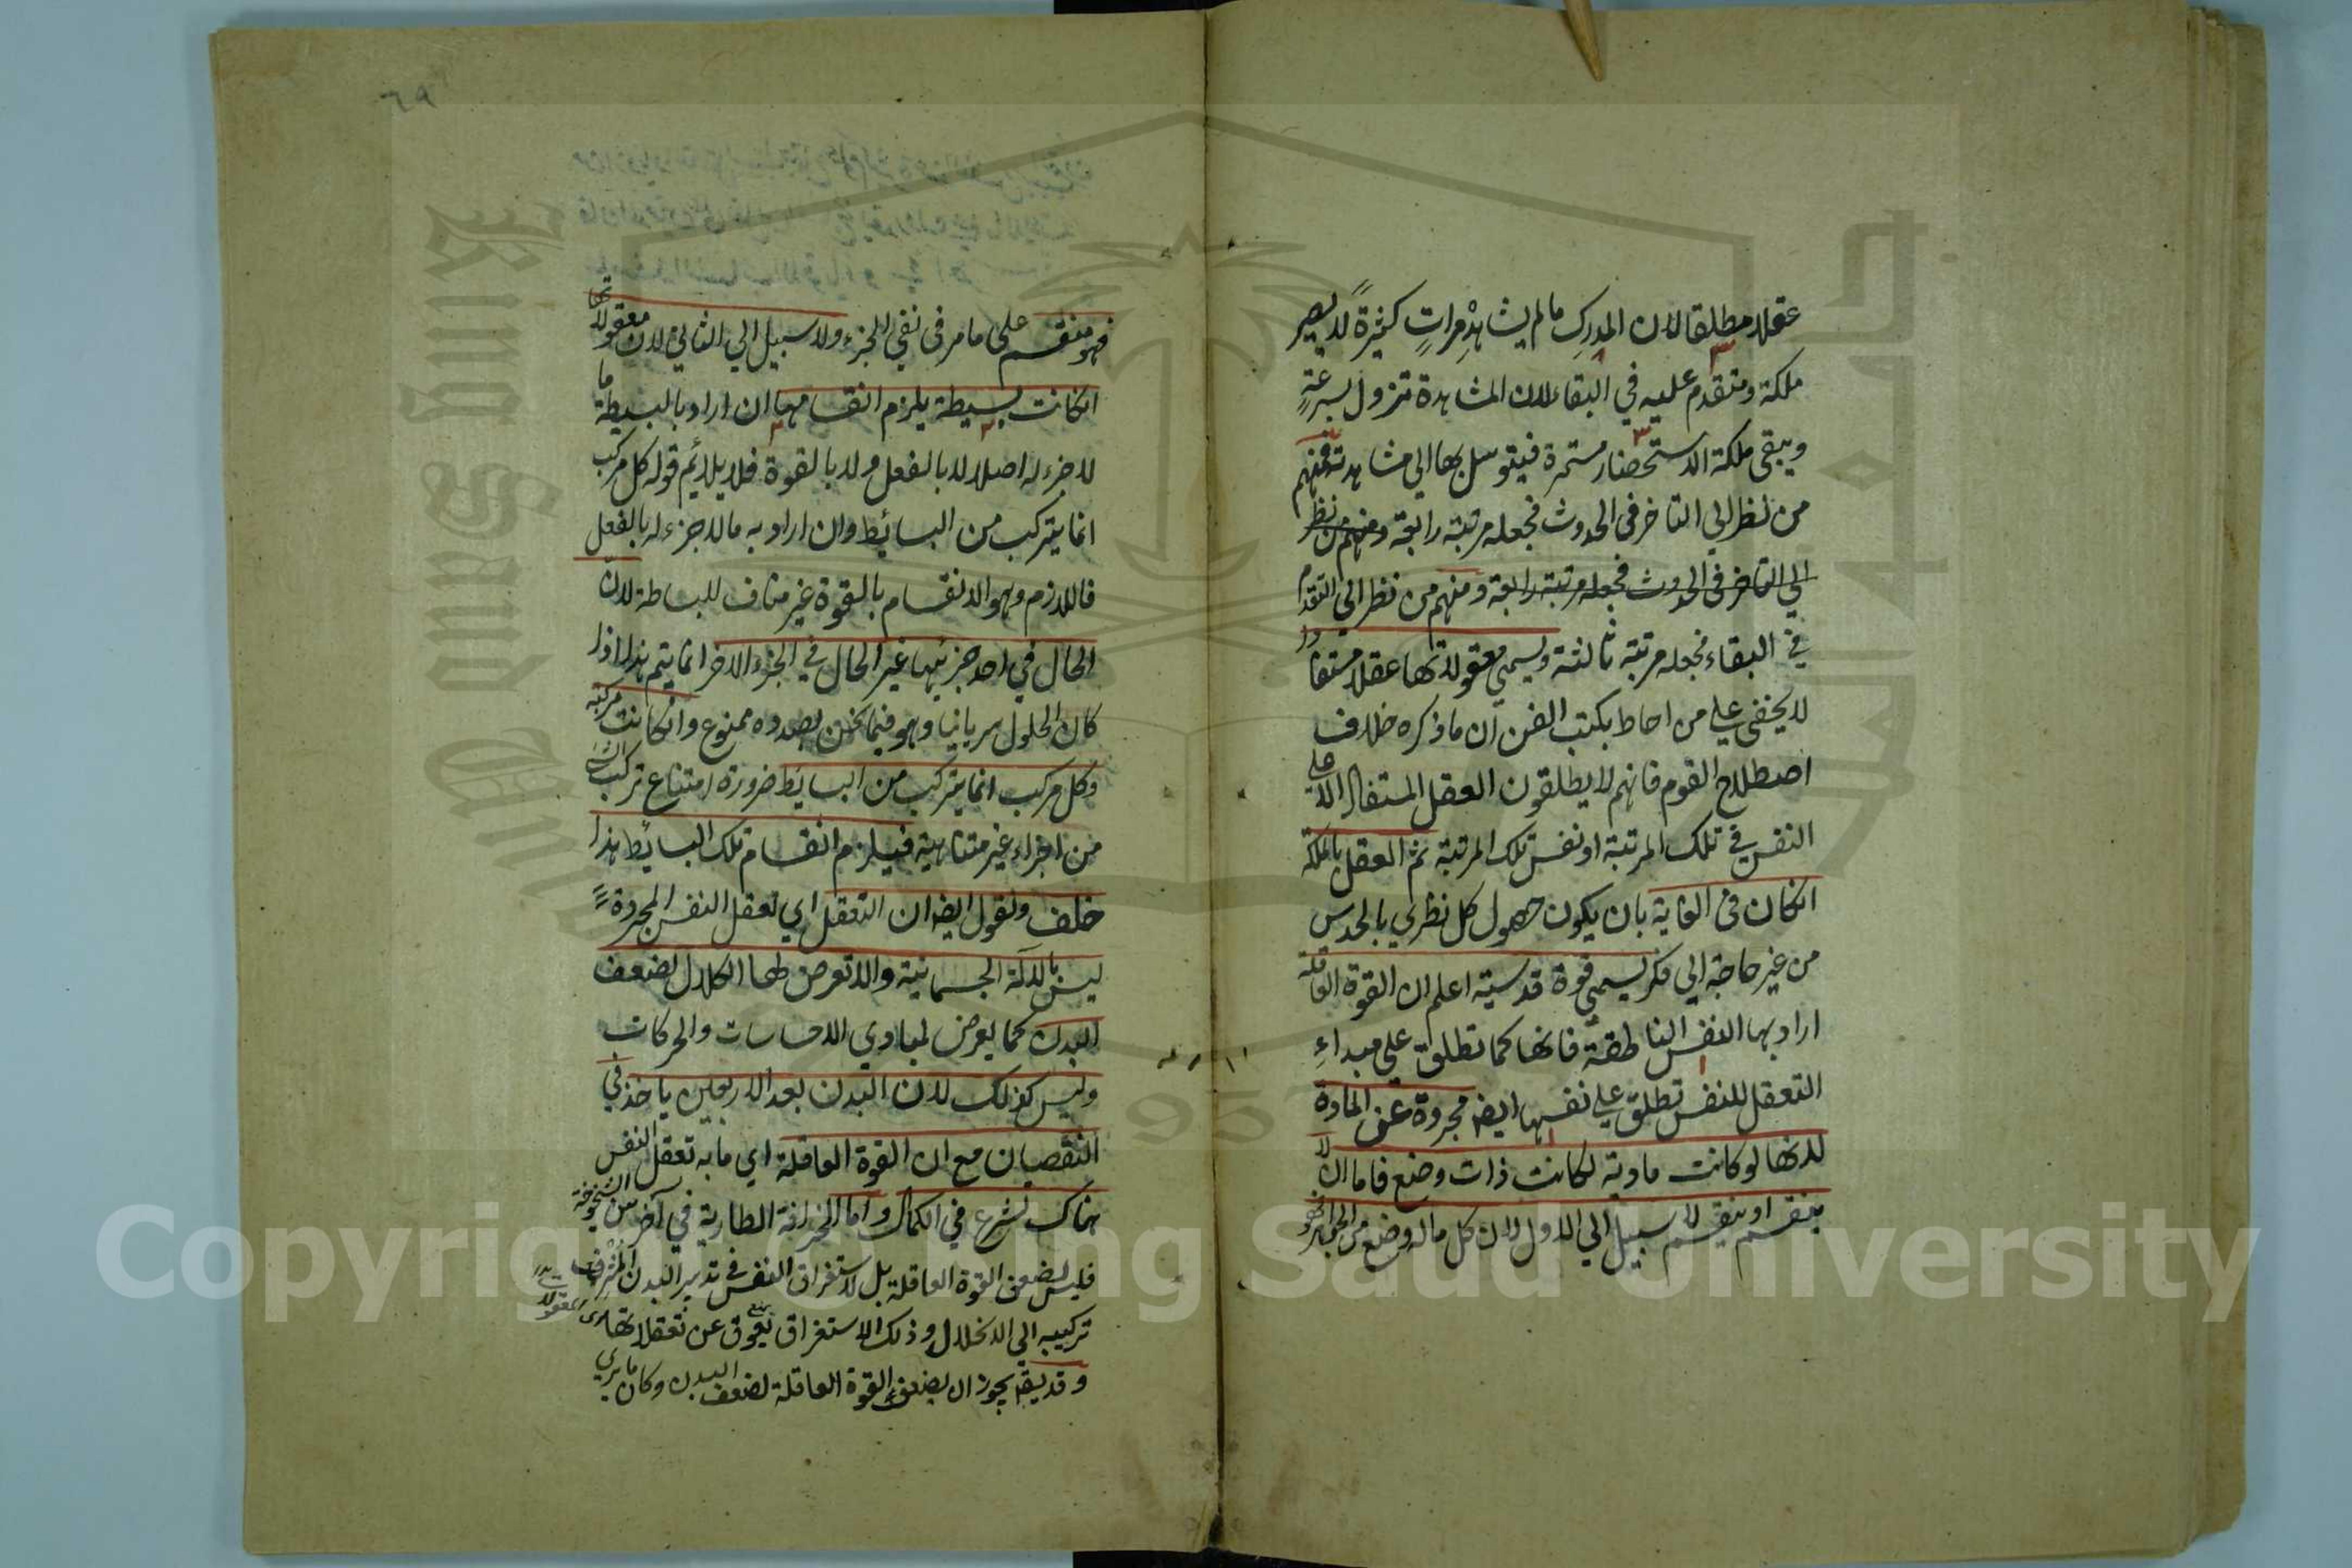 عقلا مطلقا لان المدرك ما لم يشاهد مرات كثيرة لا يصير
ملكة ومتقدم عليه في البقاء لان المشاهدة تزول بسرعة
ويبقى ملكة الاستحضار مستمرة فيتوسل بها الى مشاهدته فمنهم
من نظر الى التاخر في الحدوث فجعله مرتبة رابعة ومنهم من نظر
الى التاخر في الحدوث فجعله مرتبة رابعة ومنهم من نظر الى التقدم
في البقاء فجعله مرتبة ثالثة ويسمى معقولاتها عقلا مستفادا
لا يخفى على من احاط بكتب الفن ان ما ذكره خلاف
اصطلاح القوم فانهم لا يطلقون العقل المستفاد الا على
النفس في تلك المرتبة او نفس تلك المرتبة ثم العقل بالملكة
انكان في الغاية بان يكون حصول كل نظري بالحدس
من غير حاجة الى فكر يسمى قوة قدسية اعلم ان القوة العاقلة
اراد بها النفس الناطقة فانها كما تطلق على مبداء
التعقل للنفس تطلق على نفسها ايضا مجردة عن المادة
لانها لو كانت مادية لكانت ذات وضع فاما ان لا
ينقسم او ينقسم لا سبيل الى الاول لان كل ما له وضع من الجواهر
٦٩
فهو منقسم على ما مر في نفي الجزء ولا سبيل الى الثاني لان معقولاتها
انكانت بسيطة يلزم انقسامها ان اراد بالبسيطة ما
لا جزء له اصلا لا بالفعل ولا بالقوة فلا يلائم قوله كل مركب
انما يتركب من البسائط وان اراد به ما لا جزء له بالفعل
فاللازم وهو الانقسام بالقوة غير مناف للبساطة لان
الحال في احد جزئيها غير الحال في الجزء الاخر انما يتم هذا اذا
كان الحلول سريانيا وهو فيما نحن بصدده ممنوع وانكانت مركبة
وكل مركب انما يتركب من البسائط ضرورة امتناع تركب الشئ
من اجزاء غير متناهية فيلزم انقسام تلك البسائط هذا
خلف ونقول ايضا ان التعقل اي تعقل النفس المجردة
ليس بالآلة الجسمانية والا تعرض لها الكلال لضعف
البدن كما يعرض لمبادي الاحساسات والحركات
وليس كذلك لان البدن بعد الاربعين ياخذ في
النقصان مع ان القوة العاقلة اي ما به تعقل النفس
هناك تشرع في الكمال واما الخرافة الطارية في آخر سن الشيخوخة
فليس لضعف القوة العاقلة بل لاستغراق النفس في تدبير البدن المشرف
تركيبه الى الانحلال وذلك الاستغراق يعوق عن تعقلاتها
وقد يقال يجوز ان يضعف القوة العاقلة لضعف البدن وكان ما يرى
Copyright © King Saud University
King Saud University
1957